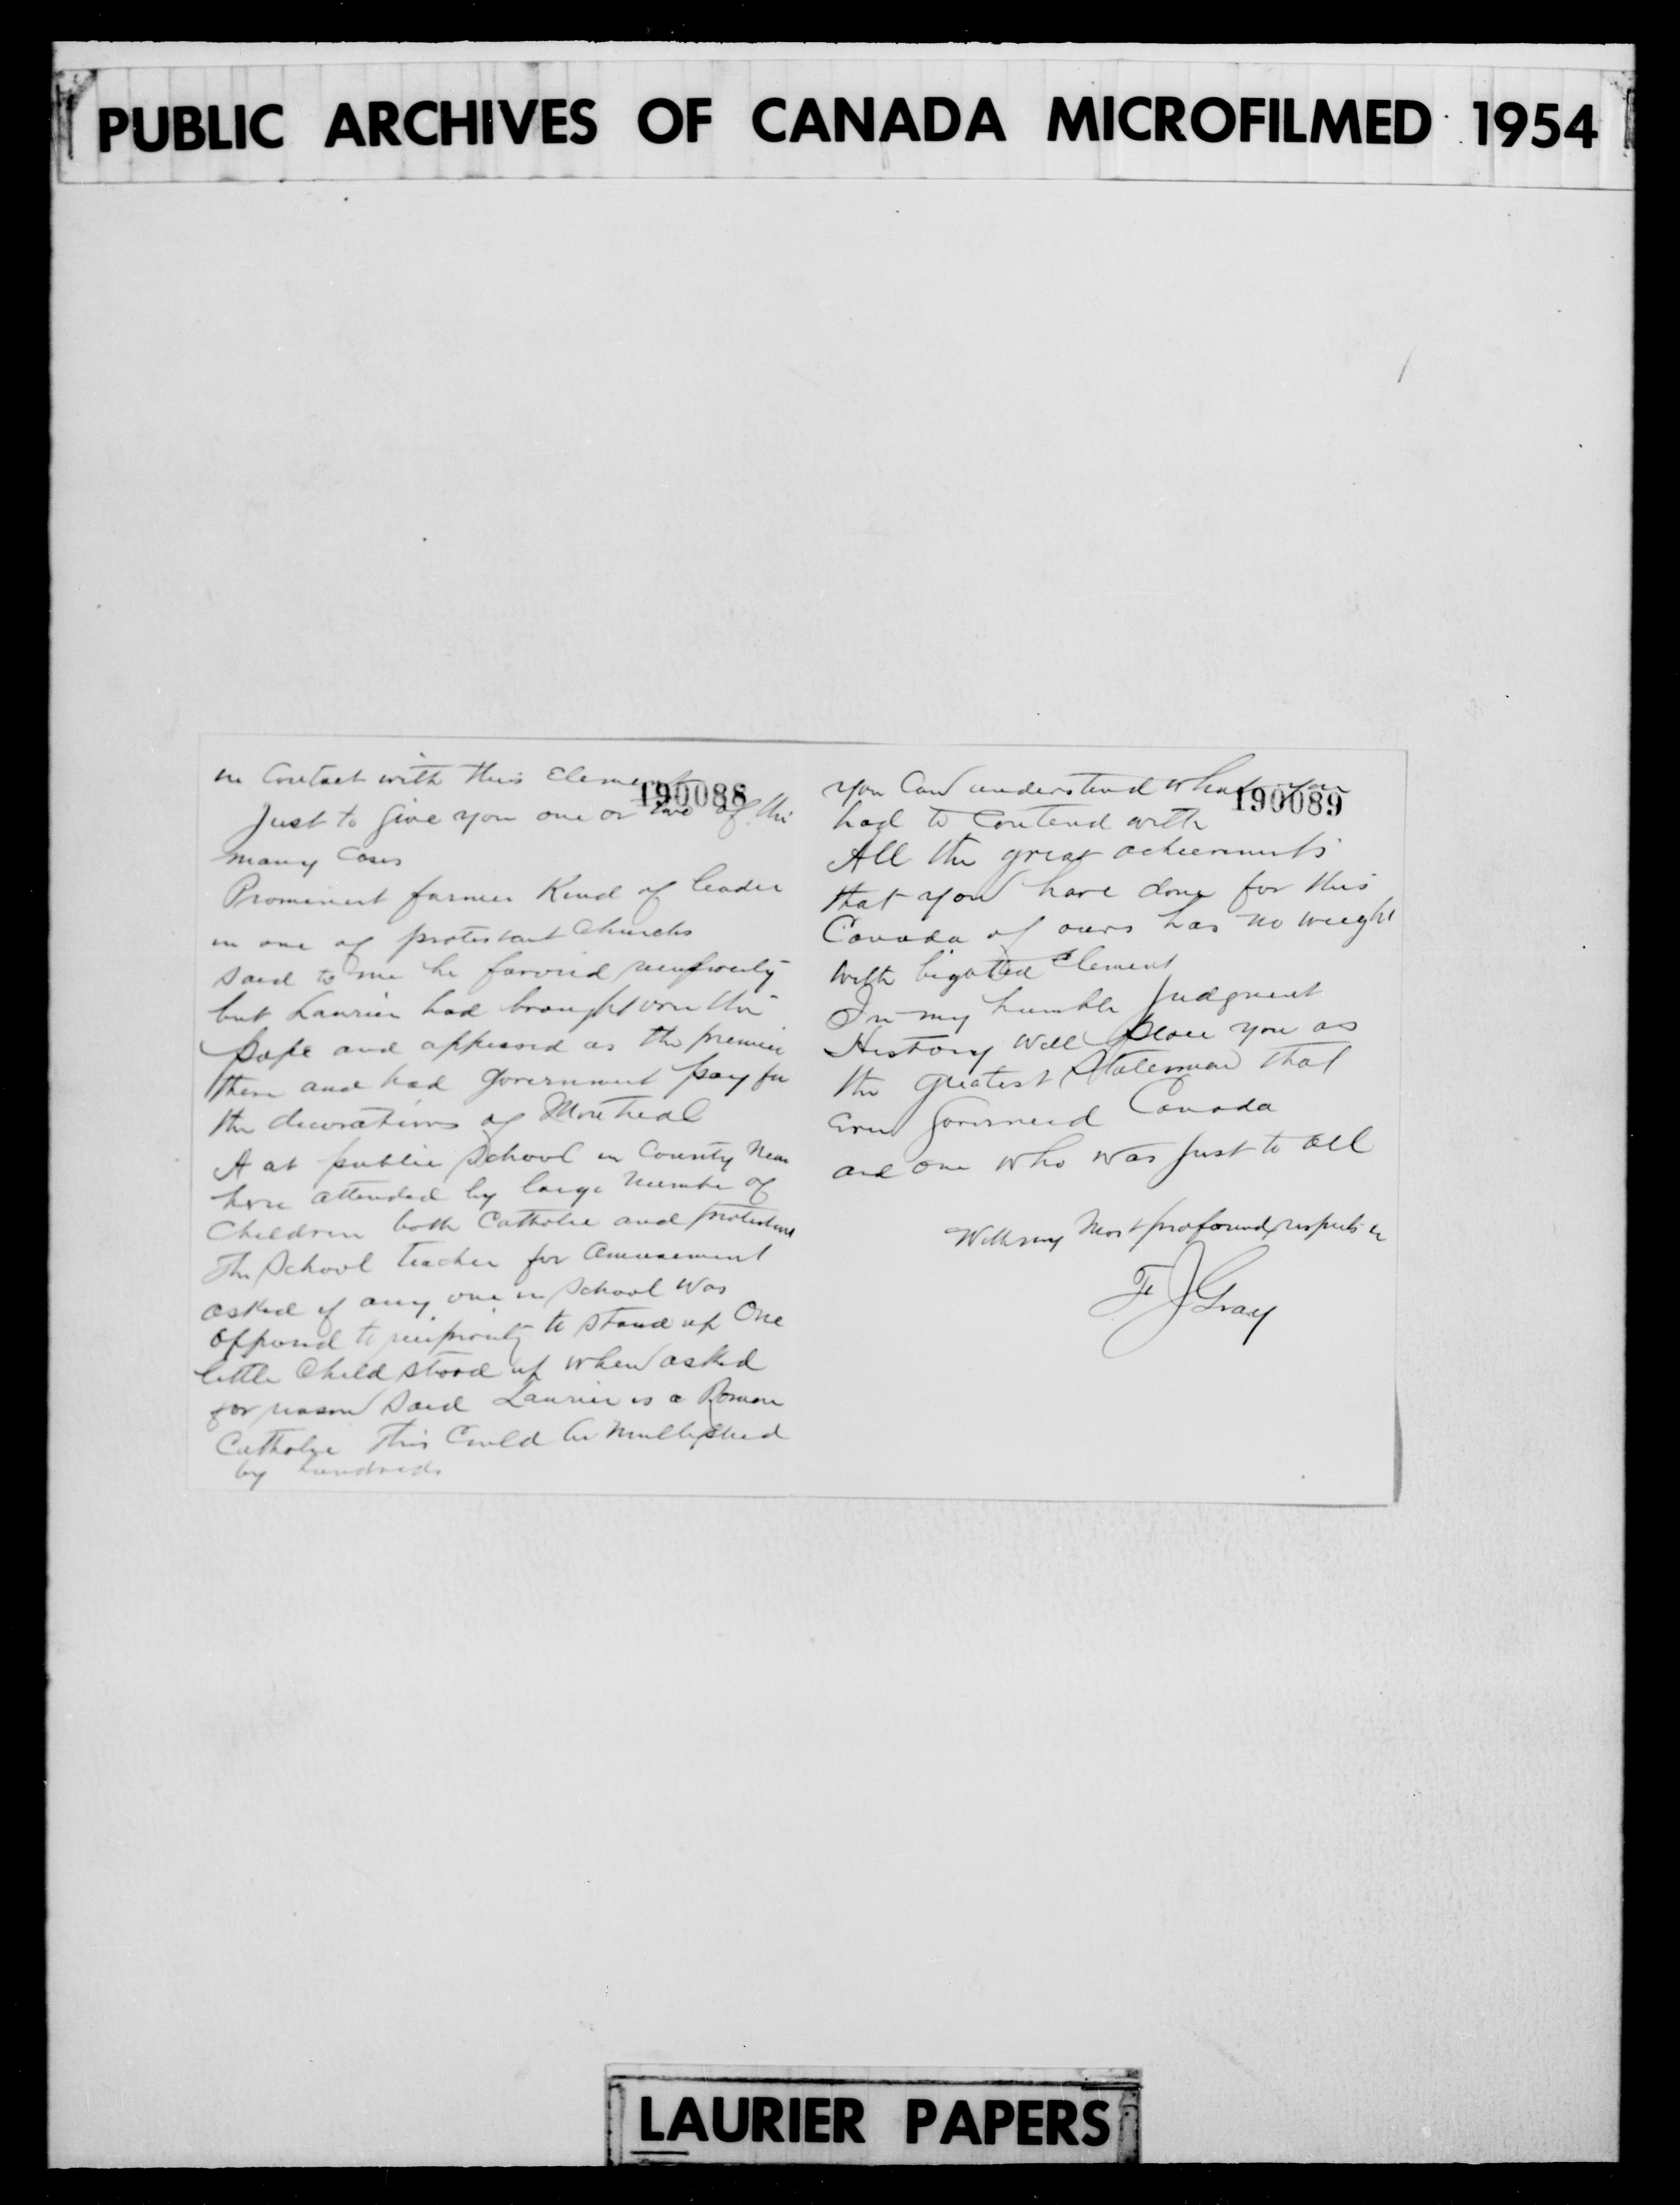 PUBLIC ARCHIVES OF CANADA MICROFILMED 1954
in Contact with this Element
190088
Just to give you one or two of the
many Cases
Prominent farmer Kind of leader
in one of protestant Churchs
said to me he favored reciprocity
but Laurier had brought over the
Pope and appeared as the premier
there and had Government pay for
the decorations of Montreal
A at public School in County Near
here attended by large Number of
Children both Catholic and protestant
The School teacher for amusement
asked if any one in School was
opposed to reciprocity to stand up One
little Child stood up when asked
for reason said Laurier is a Roman
Catholic This Could be Multiplied
by hundreds
you Can understand what you
190089
had to Contend with
All the great acheivements
that you have done for this
Canada of ours has no weight
with bigoted Element
In my humble Judgment
History will place you as
the greatest Statesman that
ever Governed Canada
and one who was Just to all
With my Most profound respects
F J Gray
LAURIER PAPERS